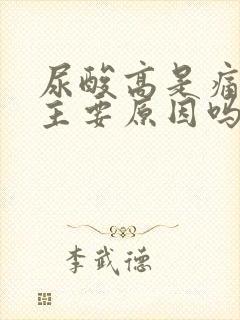 尿酸高是痛
主要原因吗
李武德